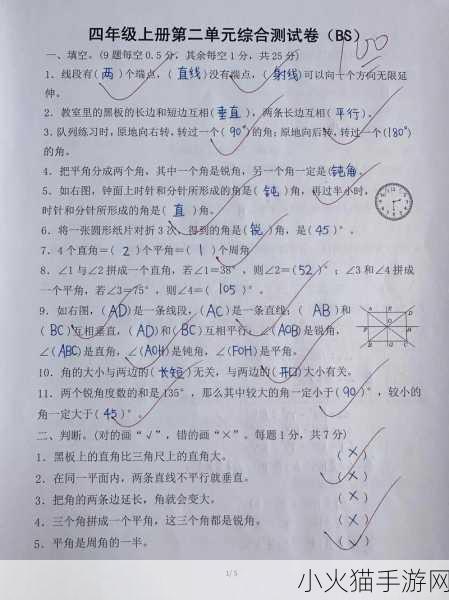 四年级上册第二单元综合测试卷（BS）
100
一、填空。(9题每空0.5分，其余每空1分，共25分)
1．线段有(两)个端点，(直线)没有端点，(射线)可以向一个方向无限延
伸。
2．教室里的黑板的长边和短边互相(垂直)，两条长边互相(平行)。
3．队列练习时，原地向右转，转过一个(90°)的角；原地向后转，转过一个(180°)
的角。
4．把平角分成两个角，其中一个角是锐角，另一个角一定是(钝角)。
5．如右图，钟面上时针和分针所形成的角是(钝)角，再过半小时，
时针和分针所形成的角是(直)角。
6．将一张圆形纸片对折3次，得到的角是(锐)角，是(45)°。
7．4个直角＝(2)个平角＝(1)个周角
8．∠1与∠2拼成一个直角，若∠1=38°，则∠2=(52)°；∠3和∠4拼成
一个平角，若∠3=75°，则∠4=(105)°。
9．如右图，(AD)是一条线段，(AC)是一条直线；(AB)和
(BC)互相垂直，(AD)和(BC)互相平行；∠(AOB)是锐角，
∠(ABC)是直角，∠(AOH)是钝角，∠(FOH)是平角。
10．角的大小与两边的(长短)无关，与两边的(开口)大小有关。
11．两个锐角度数的和是135°，那么其中较大的角一定小于(90)°，较小的
角一定大于(45)°。
二、判断。(对的画“√”，错的画“×”。每题1分，共7分)
1．黑板上的直角比三角尺上的直角大。(×)
2．在同一平面内，两条直线不平行就垂直。(×)
3．把角的两条边延长，角就会变大。(×)
4．三个角拼成一个平角，这三个角都是锐角。(×)
5．平角是周角的一半。
1/5
小火猫手游网